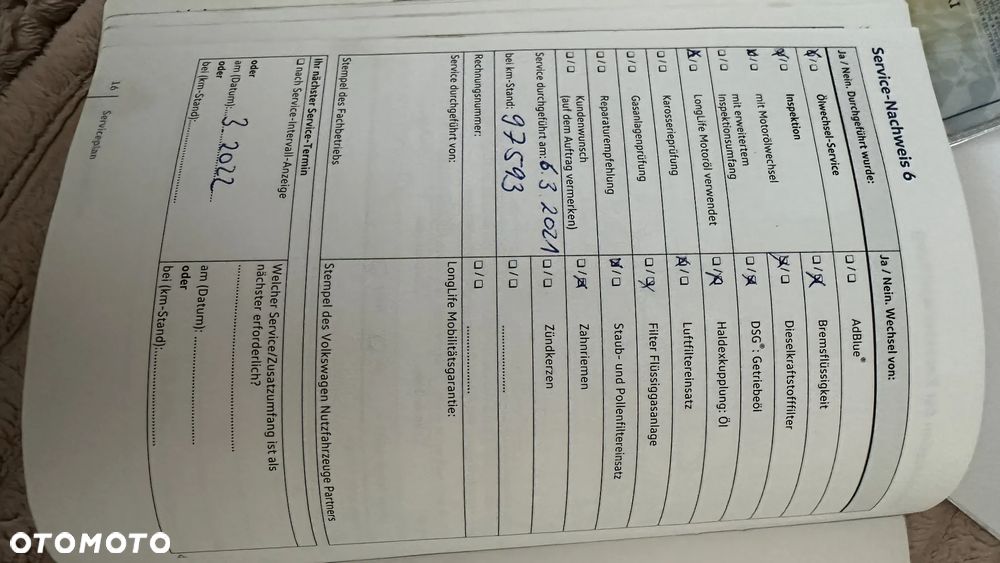 Service-Nachweis 6
Ja / Nein. Durchgeführt wurde:
☒/☐ Ölwechsel-Service
☒/☐ Inspektion
☒/☐ mit Motorölwechsel
☐/☐ mit erweitertem
Inspektionsumfang
☒/☐ LongLife Motoröl verwendet
☐/☐ Karosserieprüfung
☐/☐ Gasanlagenprüfung
☐/☐ Reparaturempfehlung
☐/☐ Kundenwunsch
(auf dem Auftrag vermerken)
Service durchgeführt am: 6.3.2021
bei km-Stand: 97593
Rechnungsnummer:
Service durchgeführt von:
Stempel des Fachbetriebs
Ja / Nein. Wechsel von:
☐/☐ AdBlue®
☐/☒ Bremsflüssigkeit
☒/☐ Dieselkraftstofffilter
☐/☒ DSG®: Getriebeöl
☐/☒ Haldexkupplung: Öl
☒/☐ Luftfiltereinsatz
☐/☒ Filter Flüssiggasanlage
☒/☐ Staub- und Pollenfiltereinsatz
☐/☒ Zahnriemen
☐/☐ Zündkerzen
☐/☐ ....................
☐/☐ ....................
LongLife Mobilitätsgarantie:
Stempel des Volkswagen Nutzfahrzeuge Partners
Ihr nächster Service-Termin
☐ nach Service-Intervall-Anzeige
oder
am (Datum): 3.2022
oder
bei (km-Stand): ....................
Welcher Service/Zusatzumfang ist als
nächster erforderlich?
....................
am (Datum): ....................
oder
bei (km-Stand): ....................
16 | Serviceplan
OTOMOTO